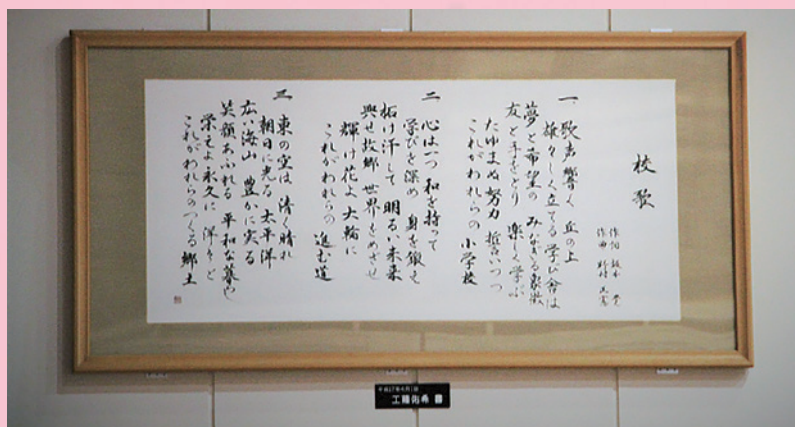 校歌
作詞
作曲
一 歌声響く 丘の上
雄々しく立てる学び舎は
夢と希望の みなぎる象徴
友と手をとり 楽しく学ぶ
たゆまぬ努力 誓いつつ
これがわれらの 小学校
二 心は一つ 和を持って
学びを深め 身を鍛え
拓け汗して 明るい未来
興せ故郷 世界をめざせ
輝け花よ 大輪に
これがわれらの 進む道
三 東の空は 清く晴れ
朝日に光る 太平洋
広い海山 豊かに実る
笑顔あふれる 平和な暮し
栄えよ永久に 洋々と
これがわれらのつくる郷土
平成27年4月1日
工藤佑希 書